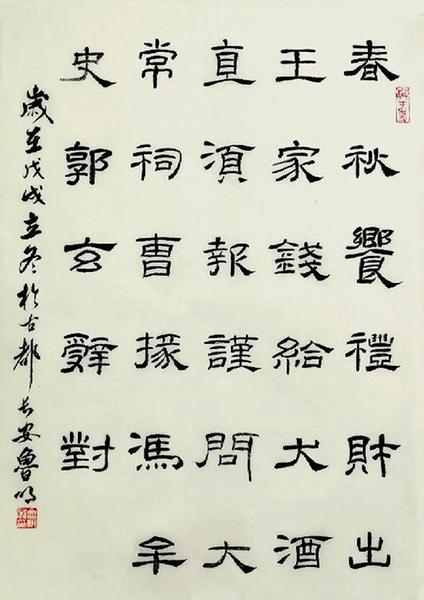 春秋饗禮財出
王家錢給犬酒
直湏報謹問大
常祠曹掾馮牟
史郭玄辭對
歲在戊戌立冬於古都長安魯明